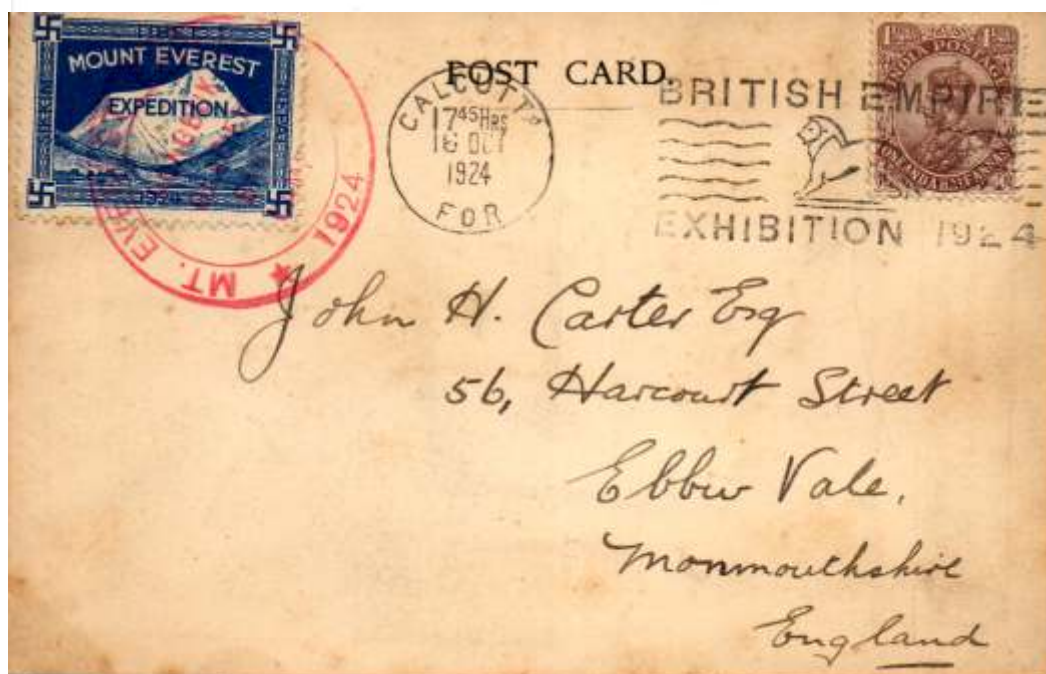 MOUNT EVEREST
EXPEDITION
1924
MT. EVE
1924
POST CARD.
CALCUTTA
17 45 HRS
16 OCT
1924
FOR
BRITISH EMPIRE
EXHIBITION 1924
INDIA POSTAGE
John H. Carter Esq
56, Harcourt Street
Ebbw Vale,
Monmouthshire
England